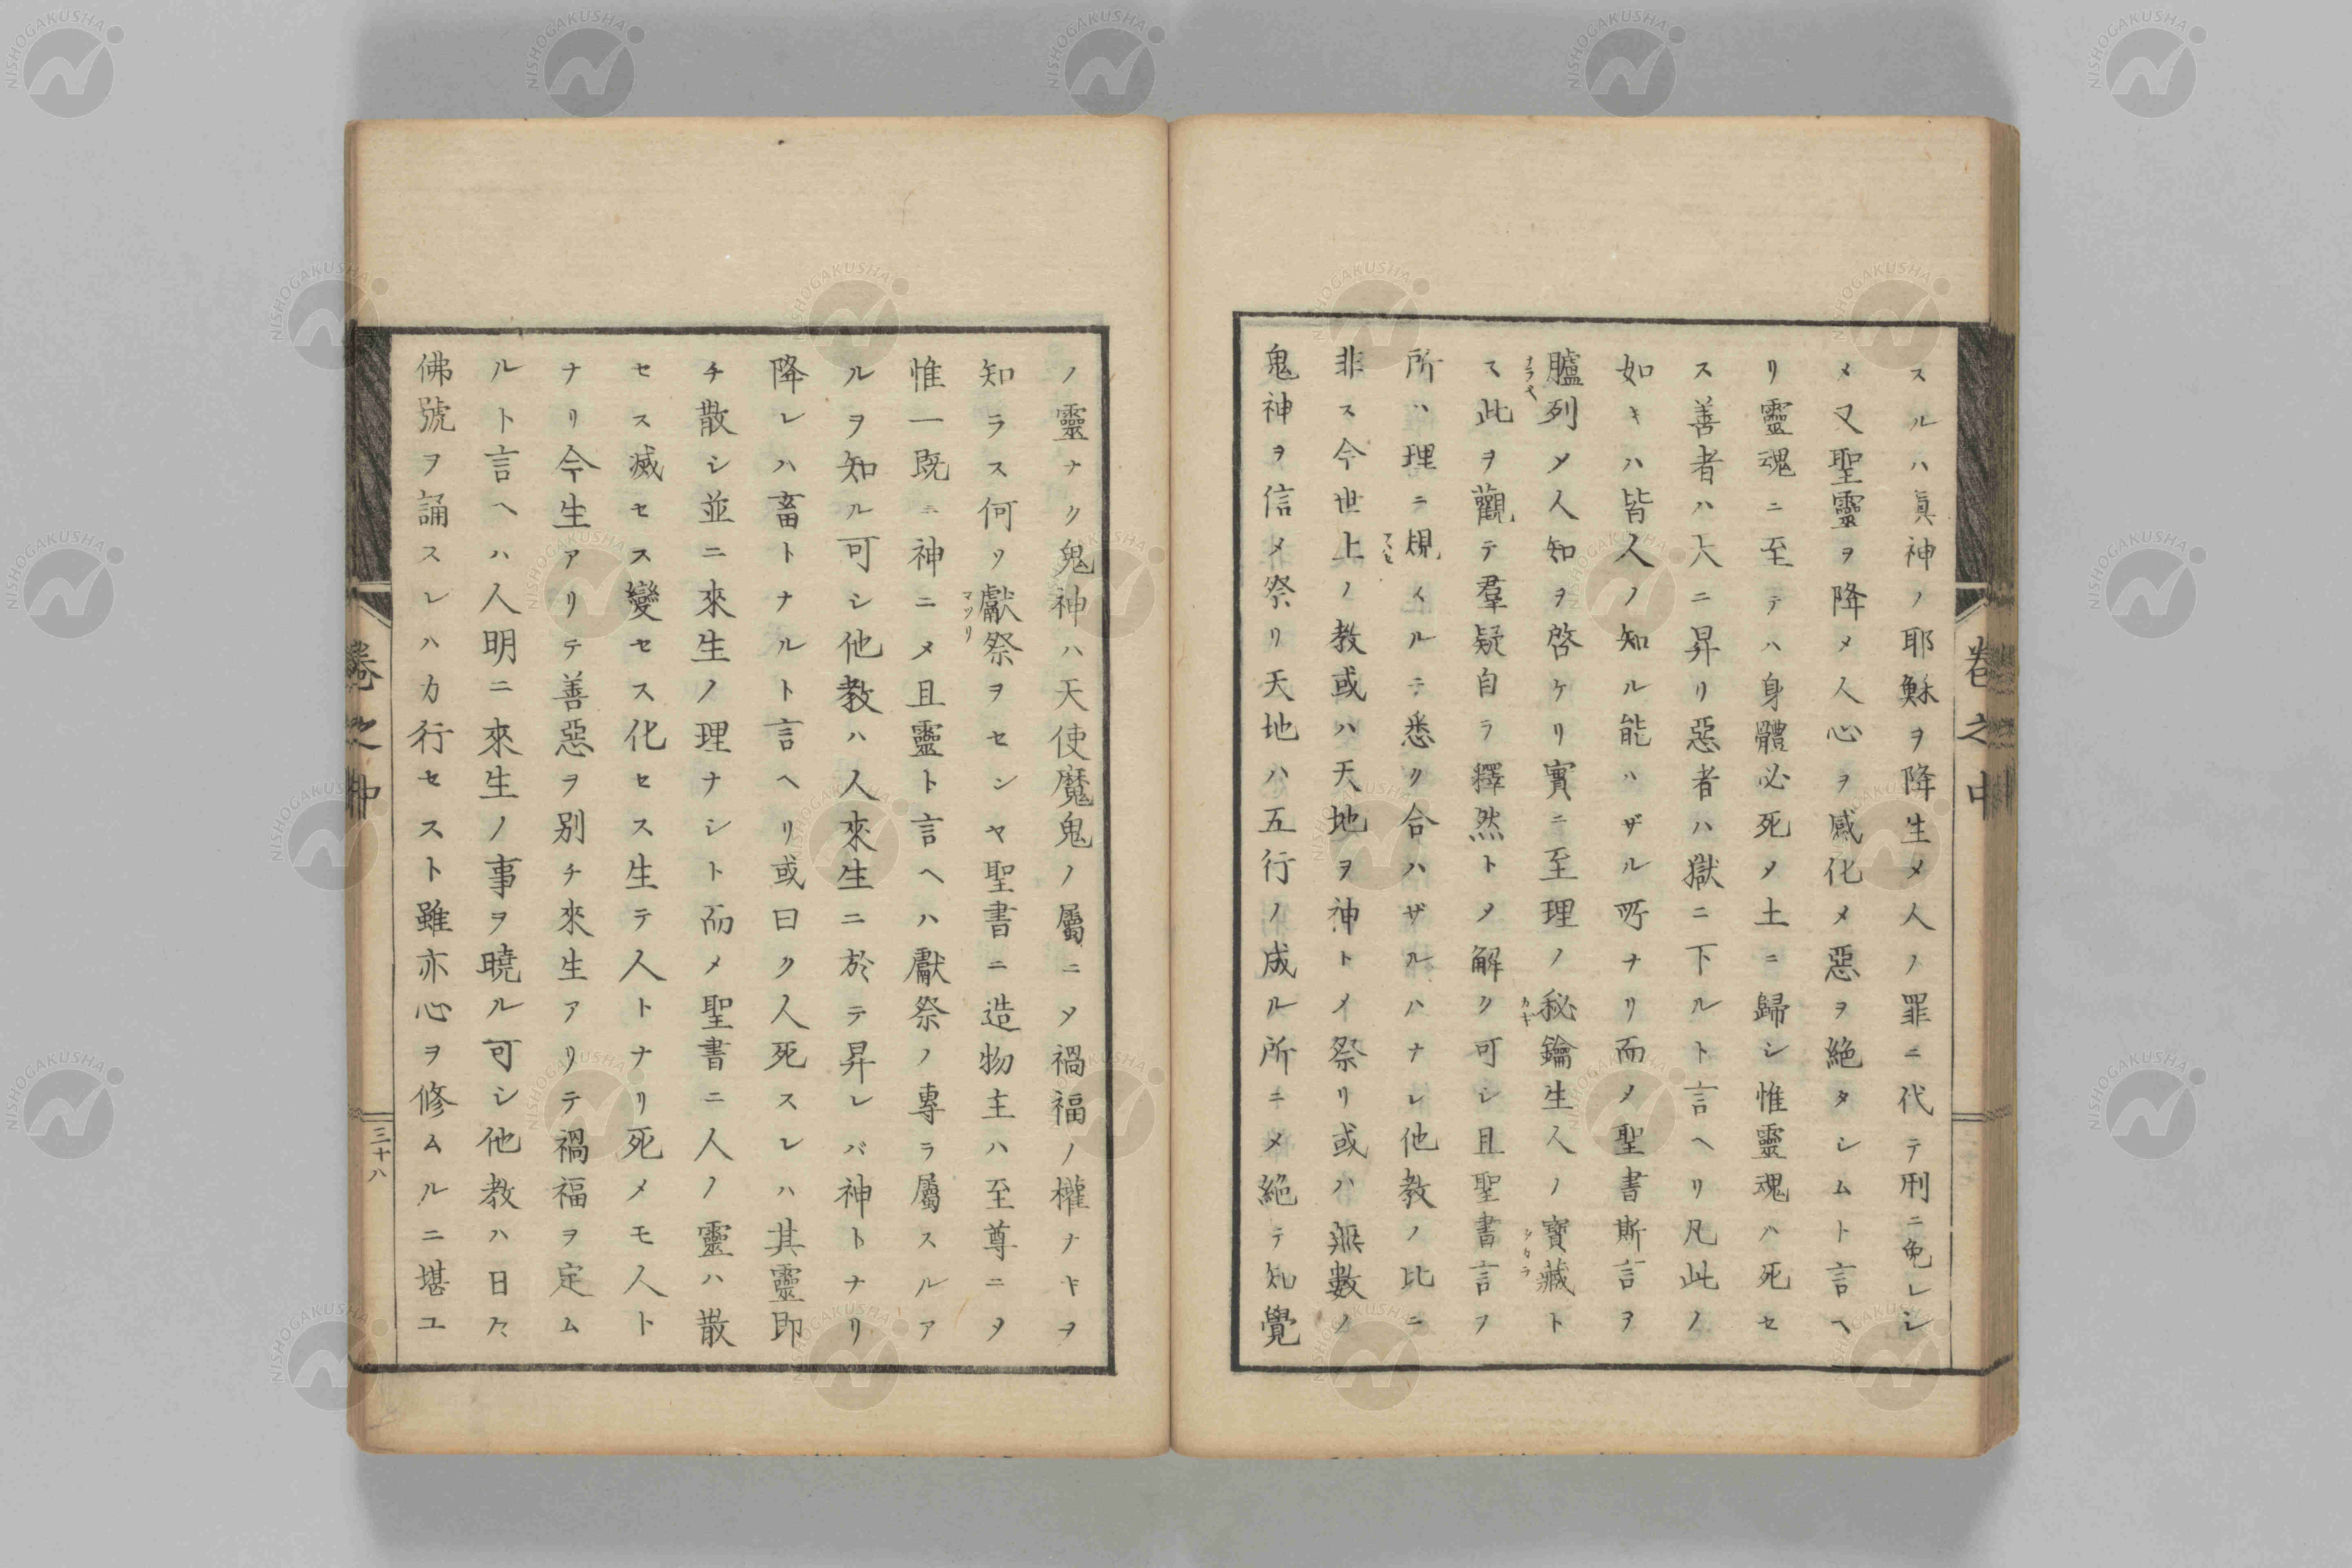 卷之中
スルハ眞神ノ耶穌ヲ降生メ人ノ罪ニ代テ刑ニ免レシ
メ又聖靈ヲ降メ人心ヲ感化メ惡ヲ絶タシムト言ヘ
リ靈魂ニ至テハ身體必死メ土ニ歸シ惟靈魂ハ死セ
ス善者ハ天ニ昇リ惡者ハ獄ニ下ルト言ヘリ凡此ノ
如キハ皆人ノ知ル能ハザル所ナリ而メ聖書斯言ヲ
臚列メ人知ヲ啓ケリ實ニ至理ノ秘鑰生人ノ寶藏ト
ス此ヲ觀テ羣疑自ラ釋然トメ解ク可シ且聖書言フ
所ハ理ニ規イルニ悉ク合ハザルハナレ他教ノ比ニ
非ス今世上ノ教或ハ天地ヲ神トメ祭リ或ハ無數ノ
鬼神ヲ信メ祭リ天地ハ五行ノ成ル所ニメ絶テ知覺
ノ靈ナク鬼神ハ天使魔鬼ノ屬ニメ禍福ノ權ナキヲ
知ラス何ソ獻祭ヲセンヤ聖書ニ造物主ハ至尊ニメ
マツリ
惟一既ニ神ニメ且靈ト言ヘハ獻祭ノ專ラ屬スルア
ルヲ知ル可シ他教ハ人來生ニ於テ昇レバ神トナリ
降レハ畜トナルト言ヘリ或曰ク人死スレハ其靈即
チ散シ並ニ來生ノ理ナシト而メ聖書ニ人ノ靈ハ散
セス滅セス變セス化セス生テ人トナリ死メモ人ト
ナリ今生アリテ善惡ヲ別チ來生アリテ禍福ヲ定ム
ルト言ヘハ人明ニ來生ノ事ヲ曉ル可シ他教ハ日々
佛號ヲ誦スレハカ行セスト雖亦心ヲ修ムルニ堪ユ
卷之中
三十八